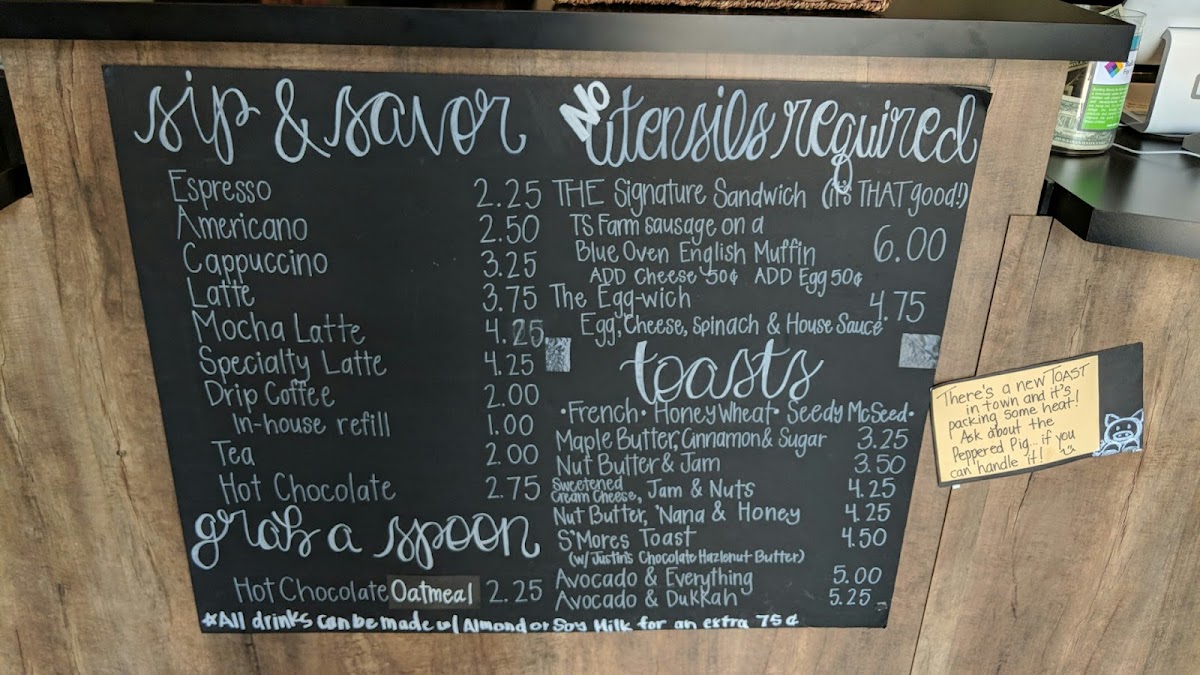 sip & savor
Espresso 2.25
Americano 2.50
Cappuccino 3.25
Latte 3.75
Mocha Latte 4.25
Specialty Latte 4.25
Drip Coffee 2.00
In-house refill 1.00
Tea 2.00
Hot Chocolate 2.75
grab a spoon
Hot Chocolate Oatmeal 2.25
NO utensils required
THE Signature Sandwich (it's THAT good!)
TS Farm sausage on a
Blue Oven English Muffin 6.00
ADD Cheese 50¢ ADD Egg 50¢
The Egg-wich 4.75
Egg, Cheese, Spinach & House Sauce
toasts
•French• Honey Wheat• Seedy McSeed•
Maple Butter, Cinnamon & Sugar 3.25
Nut Butter & Jam 3.50
Sweetened
Cream Cheese, Jam & Nuts 4.25
Nut Butter, 'Nana & Honey 4.25
S'Mores Toast 4.50
(w/ Justin's Chocolate Hazlenut Butter)
Avocado & Everything 5.00
Avocado & Dukkah 5.25
*All drinks can be made w/ Almond or Soy Milk for an extra 75¢
There's a new TOAST
in town and it's
packing some heat!
Ask about the
Peppered Pig... if you
can handle it!